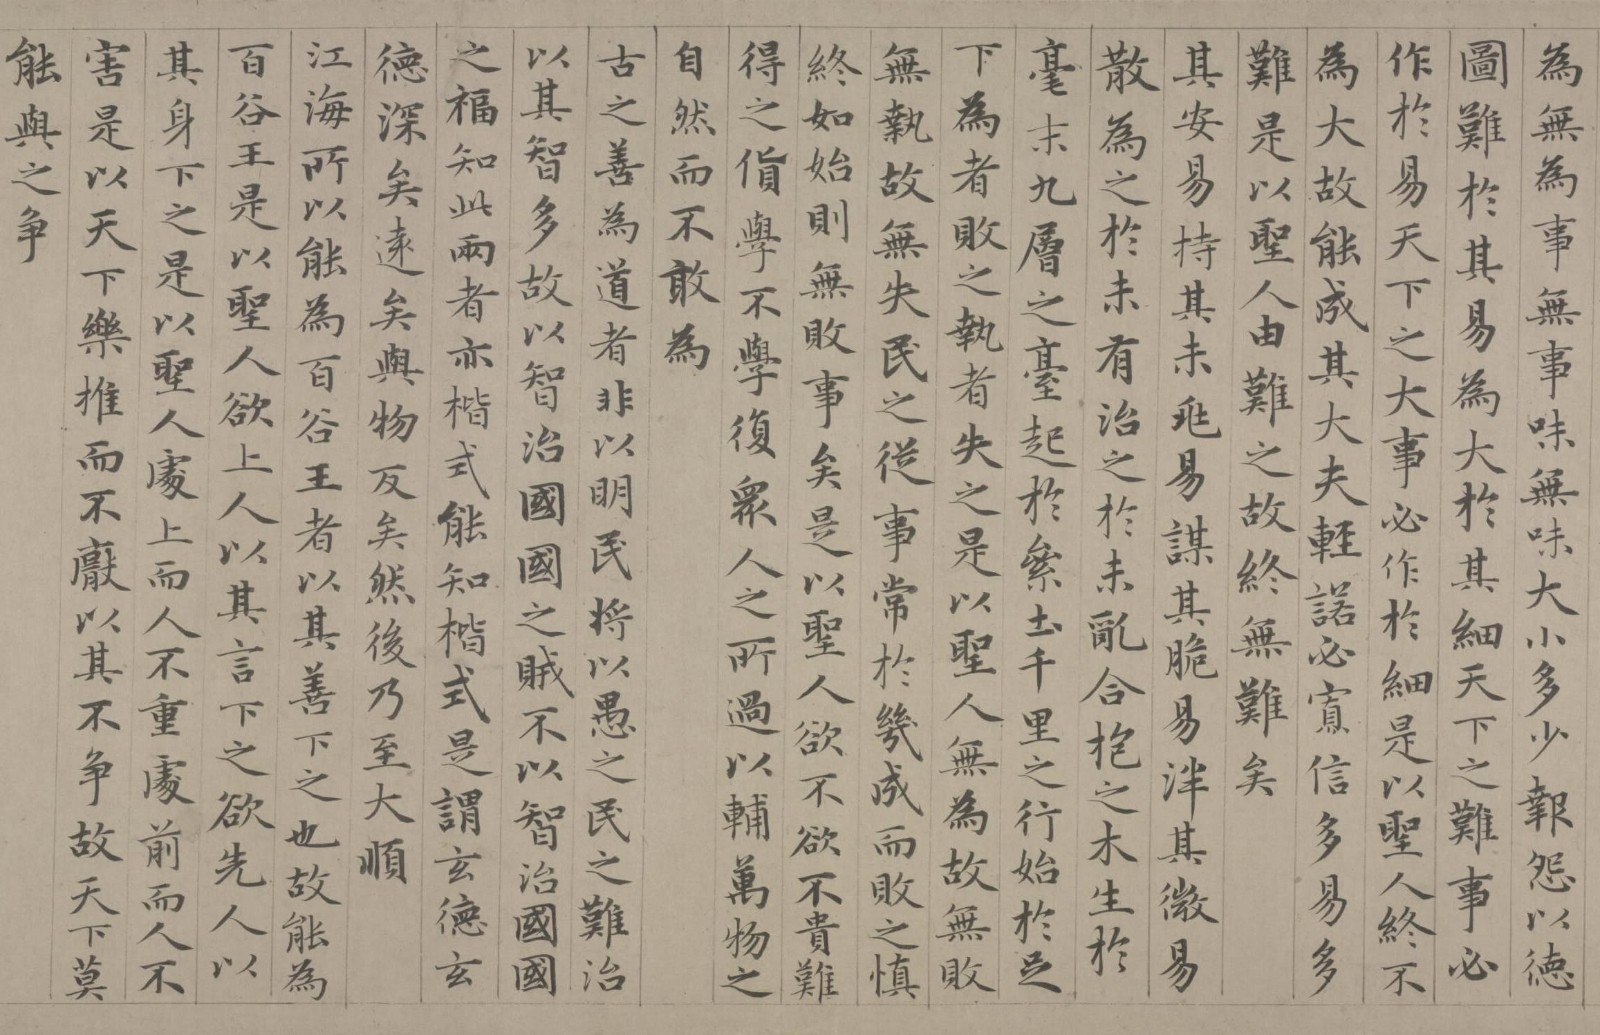 為無為事無事味無味大小多少報怨以德
圖難於其易為大於其細天下之難事必
作於易天下之大事必作於細是以聖人終不
為大故能成其大夫輕諾必寡信多易多
難是以聖人由難之故終無難矣
其安易持其未兆易謀其脆易泮其微易
散為之於未有治之於未亂合抱之木生於
毫末九層之臺起於絫土千里之行始於足
下為者敗之執者失之是以聖人無為故無敗
無執故無失民之從事常於幾成而敗之慎
終如始則無敗事矣是以聖人欲不欲不貴難
得之貨學不學復眾人之所過以輔萬物之
自然而不敢為
古之善為道者非以明民將以愚之民之難治
以其智多故以智治國國之賊不以智治國國
之福知此兩者亦楷式能知楷式是謂玄德玄
德深矣遠矣與物反矣然後乃至大順
江海所以能為百谷王者以其善下之也故能為
百谷王是以聖人欲上人以其言下之欲先人以
其身下之是以聖人處上而人不重處前而人不
害是以天下樂推而不厭以其不爭故天下莫
能與之爭